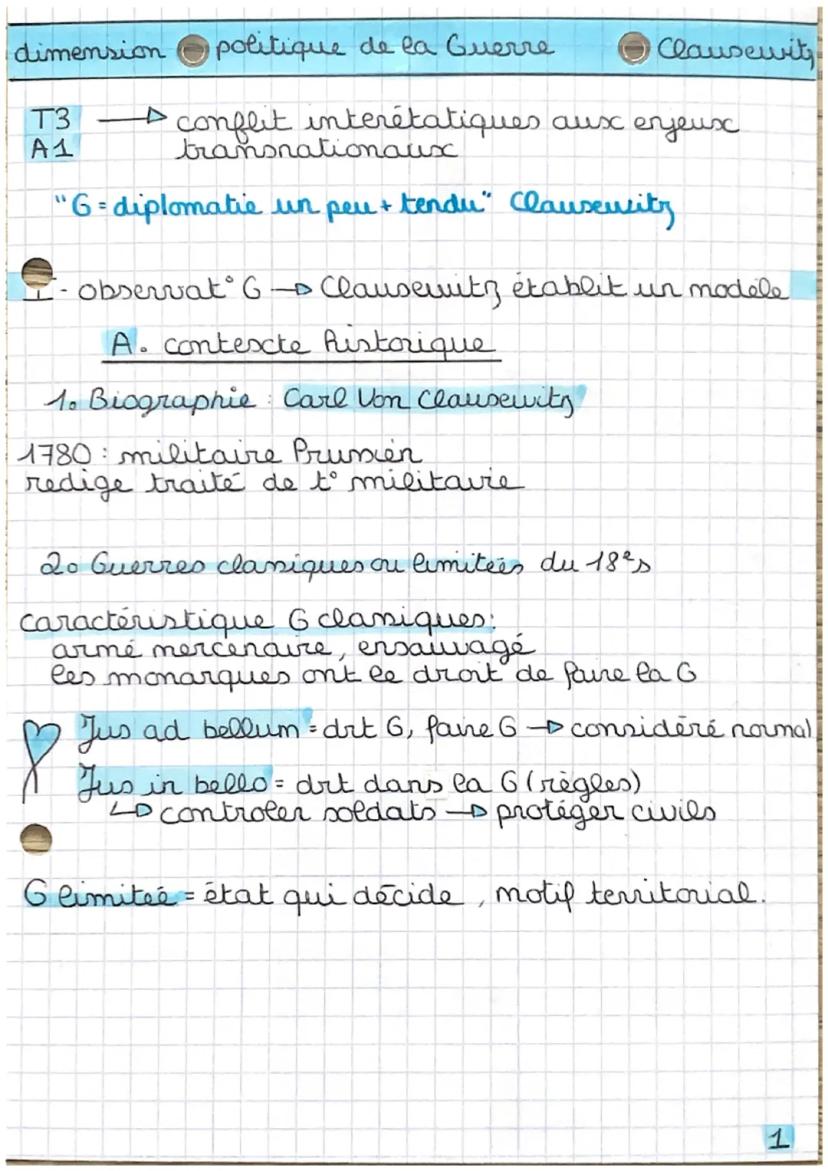 dimension politique de la Guerre Clausewitz
T3 → conflit interétatiques aux enjeux
A1 transnationaux
"G = diplomatie un peu + tendu" Clausewitz
I - observat° G → Clausewitz établit un modèle
A. contexte historique
1. Biographie : Carl Von Clausewitz
1780 : militaire Prussien
redige traité de t° militaire
2. Guerres classiques ou limitées du 18es
caractéristique G classiques:
armé mercenaire, ensauvagé
les monarques ont le droit de faire la G
Jus ad bellum = drt G, faire G → considéré normal
Jus in bello = drt dans la G (règles)
↳ controler soldats → protéger civils
G limiteé = état qui décide, motif territorial.
1